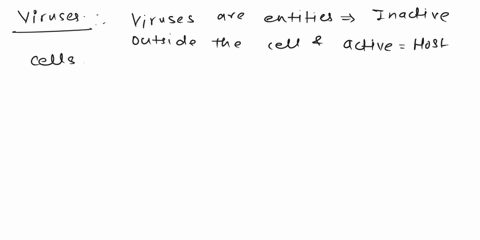 Viruses :- Viruses are entities ⇒ Inactive
outside the cell & active = Host
cells.